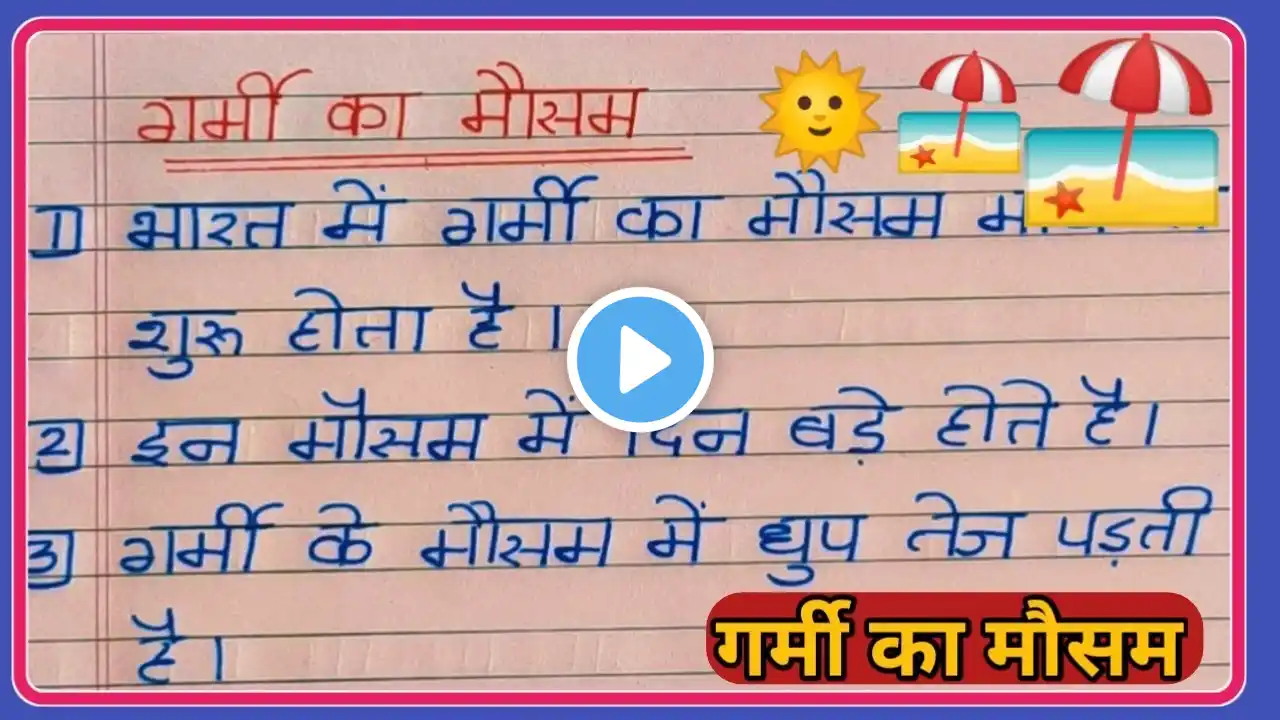 गर्मी का मौसम
1) भारत में गर्मी का मौसम
शुरू होता है।
2) इन मौसम में दिन बड़े होते है।
3) गर्मी के मौसम में धुप तेज पड़ती
है।
गर्मी का मौसम